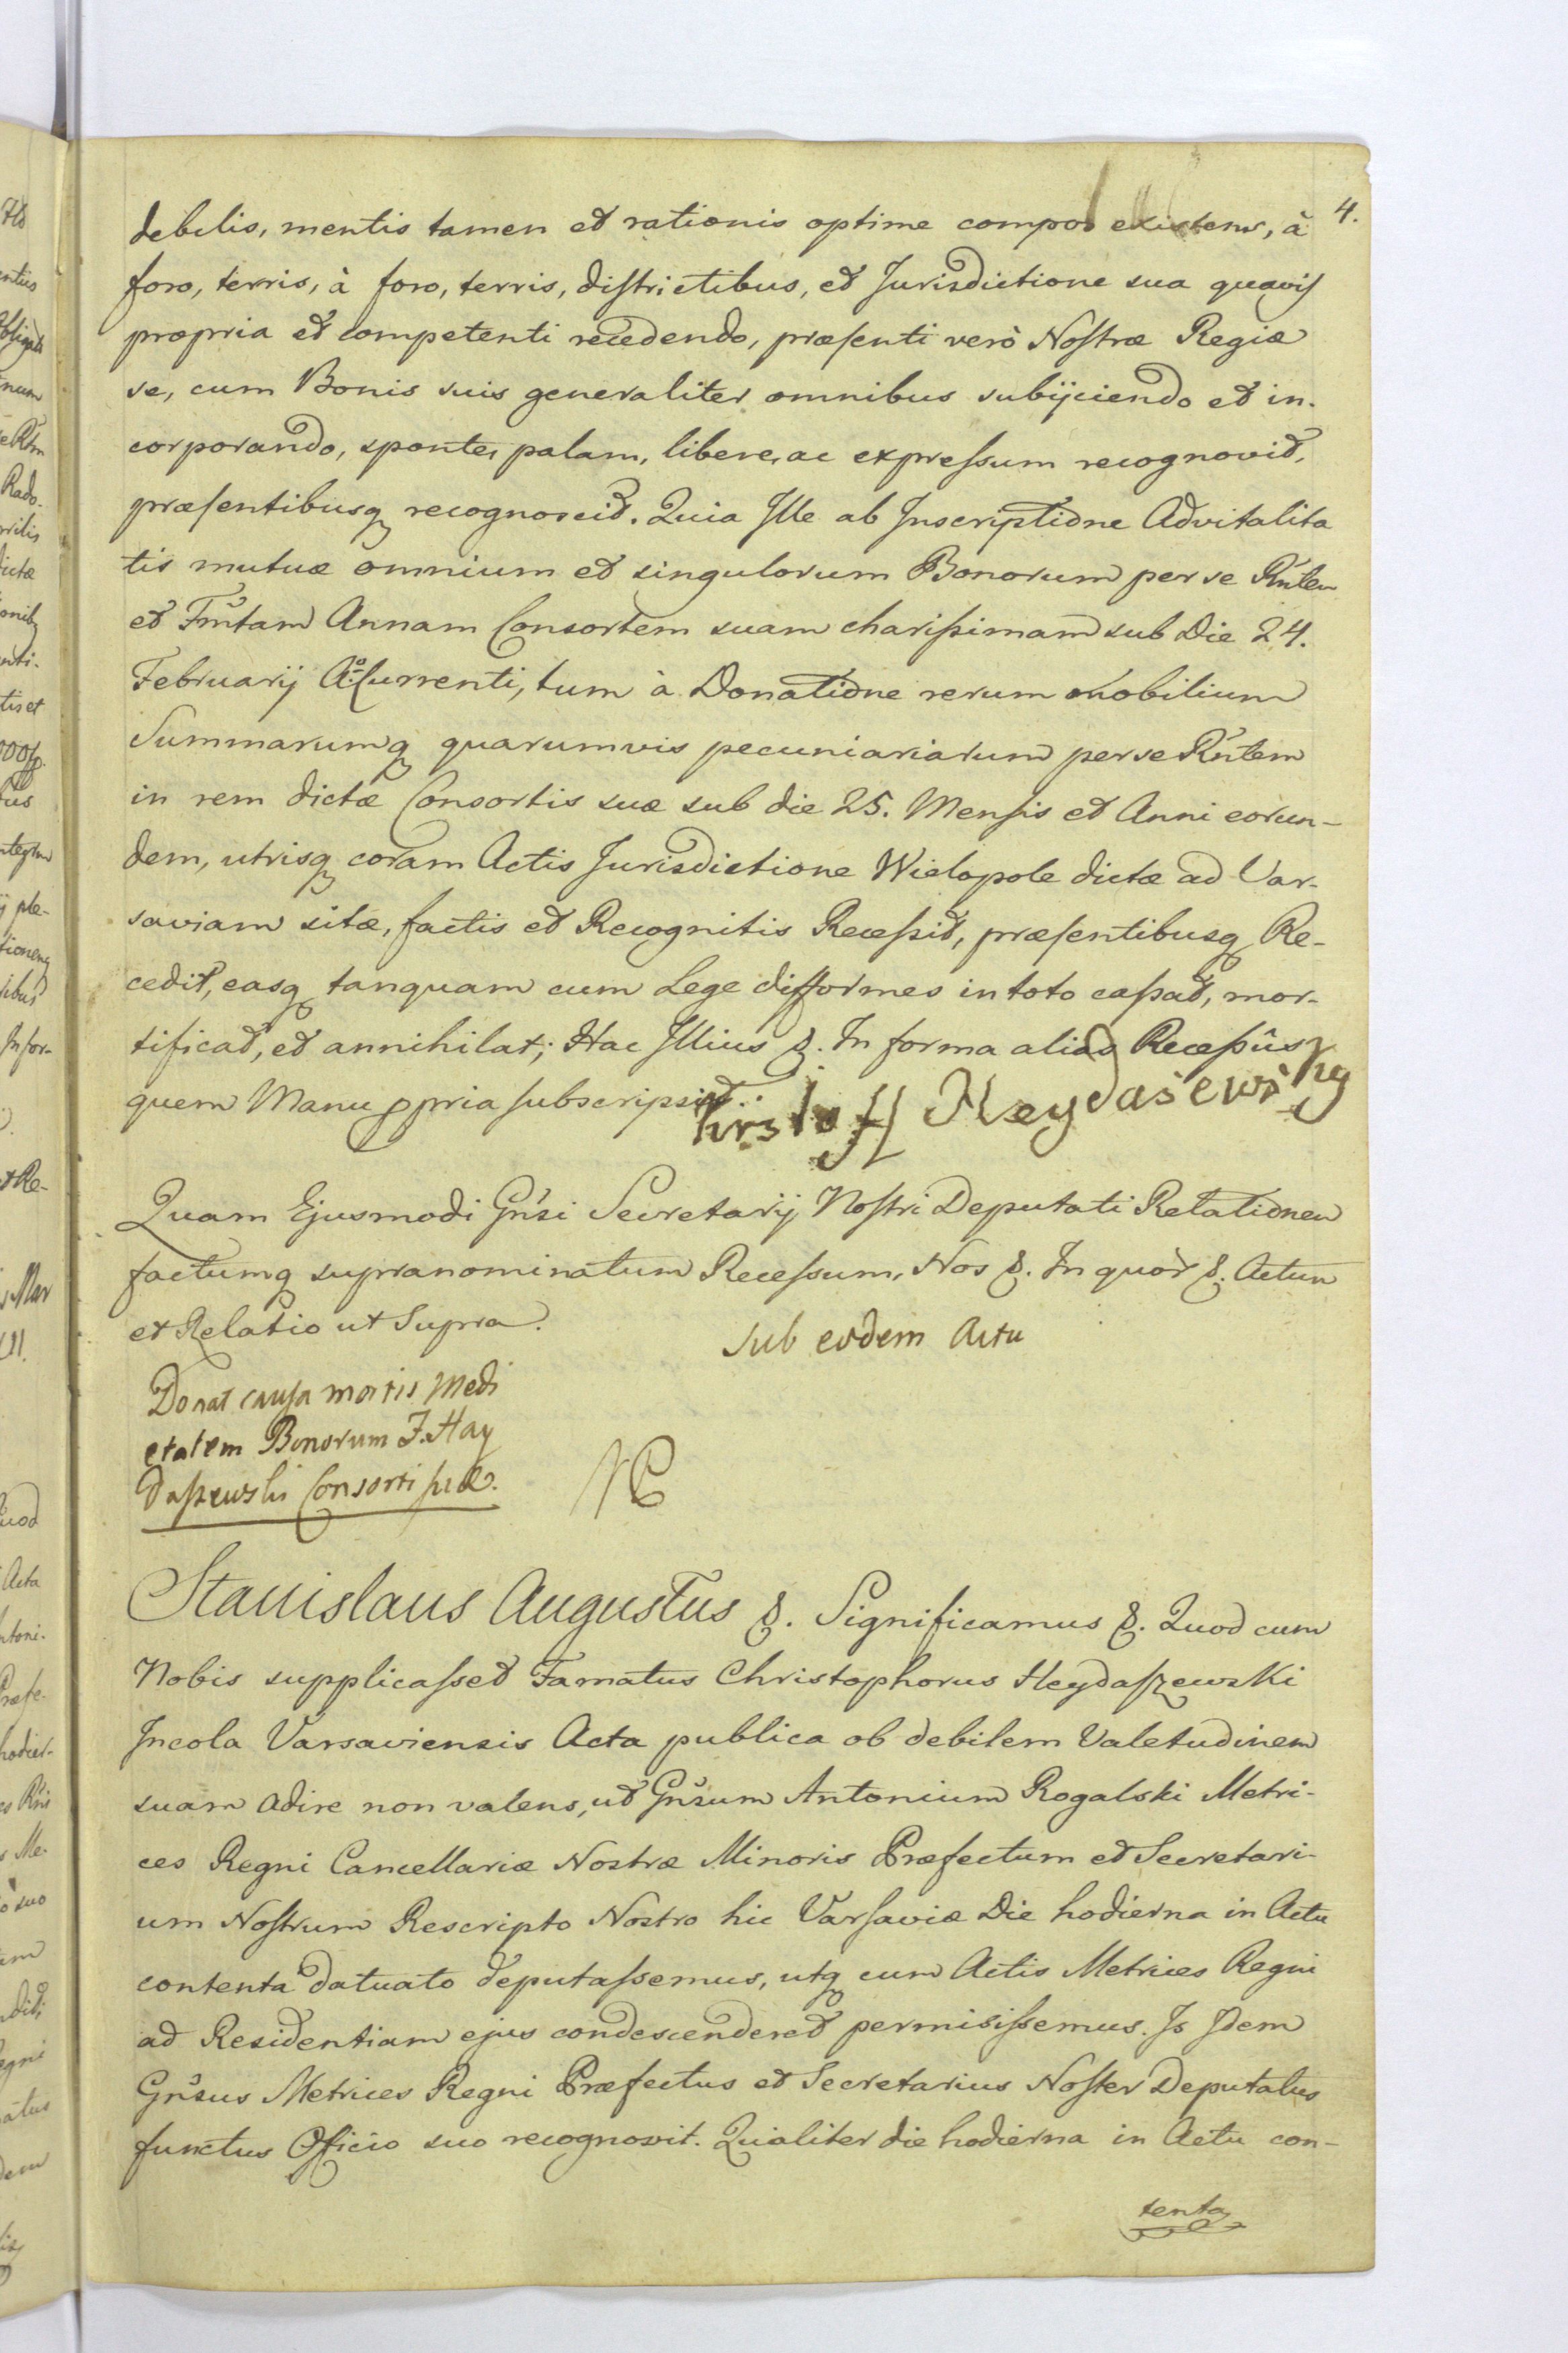 4.
debilis, mentis tamen et rationis optime compos existens, à
foro, terris, à foro, terris, districtibus, et Jurisdictione sua quavis
propria et competenti recedendo, præsenti verò Nostræ Regiæ
se, cum Bonis suis generaliter omnibus subijciendo et in-
corporando, sponte, palam, libere, ac expressum recognovit,
præsentibusq recognoscit. Quia Ille ab Inscriptione Advitalita
tis mutuæ omnium et singulorum Bonorum per se Rñtem
et Fmtam Annam Consortem suam charissimam sub Die 24.
Februarij Aº Currenti, tum à Donatione rerum mobilium
Summarumq quarumvis pecuniariarum per se Rñtem
in rem dictæ Consortis suæ sub die 25. Mensis et Anni eorun-
dem, utrisq coram Actis Jurisdictione Wielopole dictæ ad Var-
saviam sitæ, factis et Recognitis Recessit, præsentibusq Re-
cedit, easq tanquam cum Lege difformes in toto cassat, mor-
tificat, et annihilat; Hac Illius &. In forma alias Recessûs
quem Manu ppria subscripsit.
Heydasewsky
Quam Ejusmodi Gñsi Secretarij Nostri Deputati Relationem
factumq supranominatum Recessum, Nos &. In quor &. Actum
et Relatio ut Supra.
Sub eodem Actu
Donat causa mortis Medi
etatem Bonorum F. Hay
daszewski Consorti suæ.
Stanislaus Augustus &. Significamus &. Quod cum
Nobis supplicasset Famatus Christophorus Heydaszewski
Incola Varsaviensis Acta publica ob debilem Valetudinem
suam adire non valens, ut Gñsum Antonium Rogalski Metri-
ces Regni Cancellariæ Nostræ Minoris Præfectum et Secretari-
um Nostrum Rescripto Nostro hic Varsaviæ Die hodierna in Actu
contenta datuato deputassemus, utq cum Actis Metrices Regni
ad Residentiam ejus condescenderet permisissemus. Is Idem
Gñsus Metrices Regni Præfectus et Secretarius Noster Deputatus
functus Officio suo recognovit. Qualiter die hodierna in Actu con-
tenta